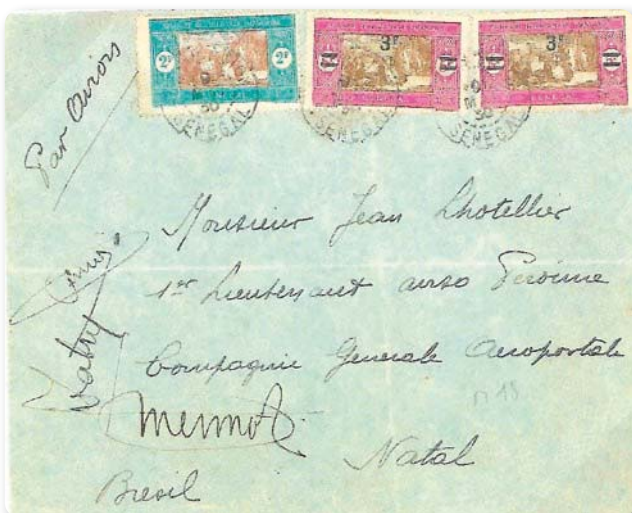 2F 2F 3F 3F
SENEGAL SENEGAL SENEGAL
Par Avion
Monsieur Jean Lhotellier
1er Lieutenant aviso Peroinne
Compagnie Generale Aeropostale
Natal
Bresil
Mermoz
n 18